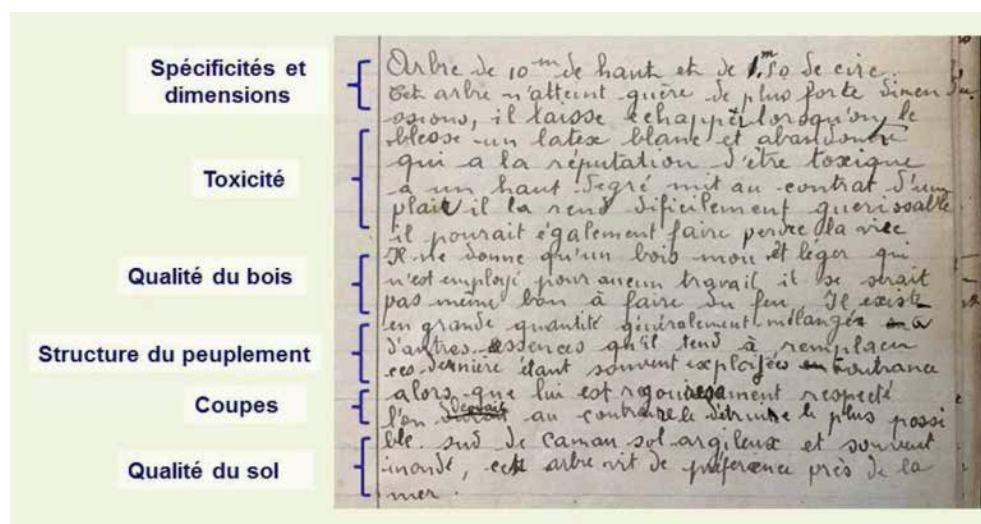 Spécificités et
dimensions
Toxicité
Qualité du bois
Structure du peuplement
Coupes
Qualité du sol
Arbre de 10 m de haut et de 1.m50 de circ.
Cet arbre n'atteint guère de plus forte dimen
ssions, il laisse echapper lorsqu'on le
blesse un latex blanc et abandonne
qui a la réputation d'être toxique
a un haut degré mit au contrat d'une
plaie il la rend dificilement guerissable
il pourait également faire perdre la vue
Il ne donne qu'un bois mou et léger qui
n'est employé pour aucun travail il se serait
pas même bon à faire du feu. Il existe
en grande quantité généralement mélangée à
d'autres essences qu'il tend à remplacer
ces dernière étant souvent exploitées outrance
alors que lui est respecté
l'on devrait au contraire le détruire le plus possi
ble. sud de Caman sol argileux et souvent
inondé, cet arbre vit de préférence près de la
mer.